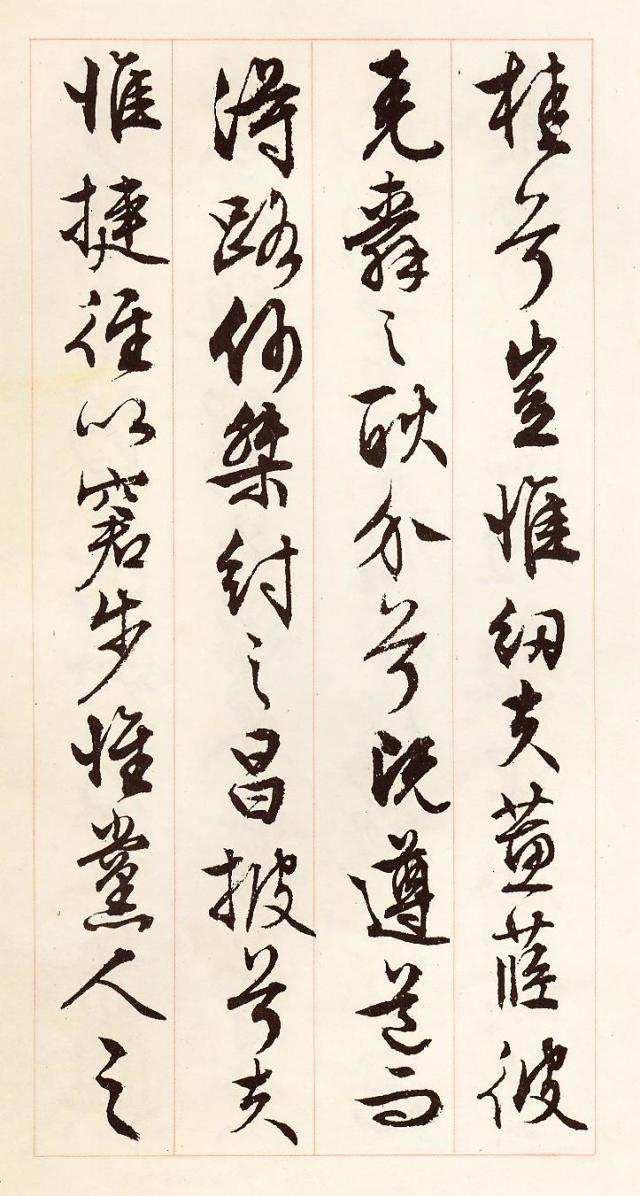 桂兮豈惟紉夫蕙茝彼
堯舜之耿介兮既遵道而
得路何桀紂之昌披兮夫
惟捷徑以窘步惟黨人之